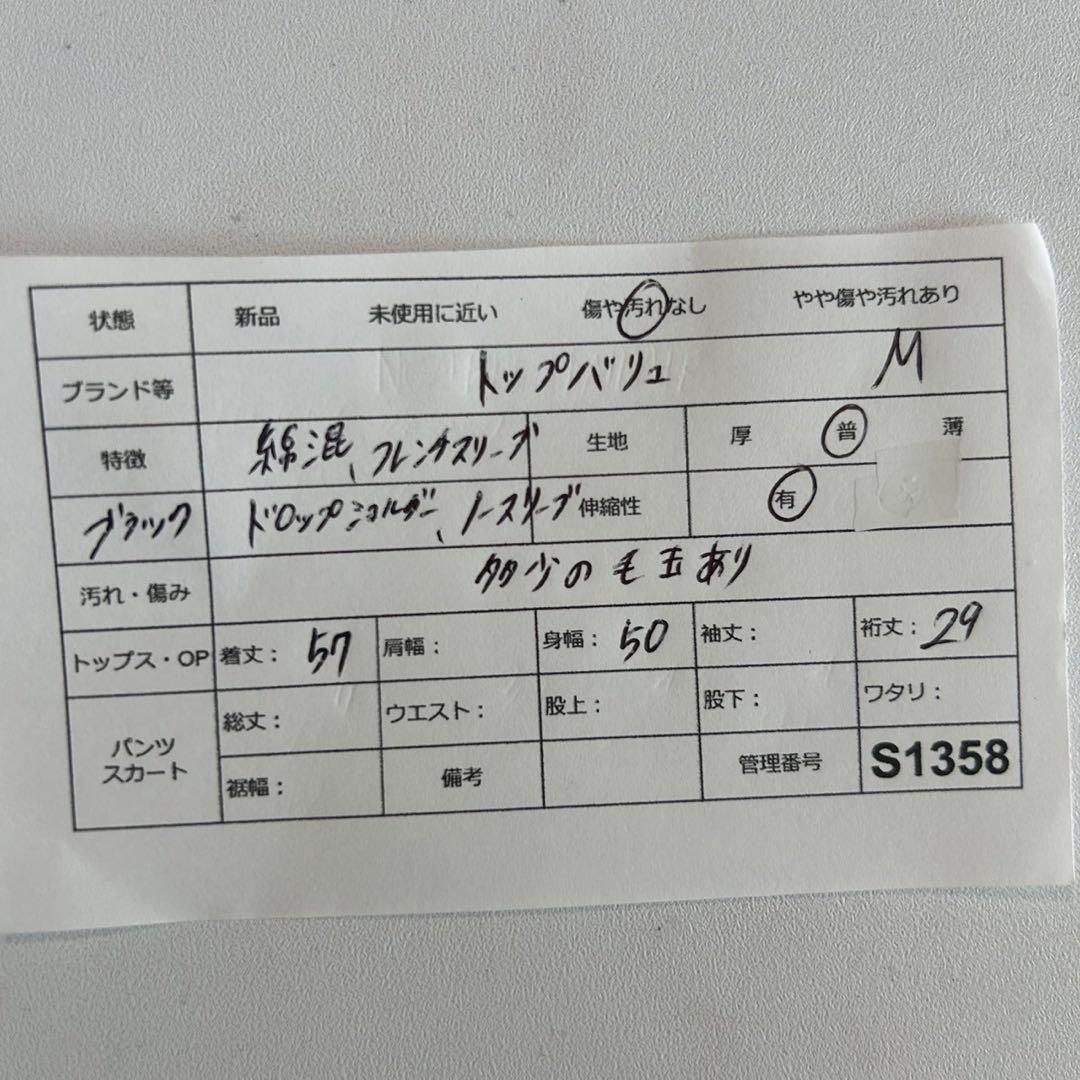 状態 新品 未使用に近い 傷や汚れなし やや傷や汚れあり
ブランド等 トップバリュ M
特徴 綿混、フレンチスリーブ 生地 厚 普 薄
ブラック ドロップショルダー、ノースリーブ 伸縮性 有
汚れ・傷み 多少の毛玉あり
トップス・OP 着丈： 57 肩幅： 身幅： 50 袖丈： 裄丈： 29
パンツ スカート 総丈： ウエスト： 股上： 股下： ワタリ：
裾幅： 備考 管理番号 S1358